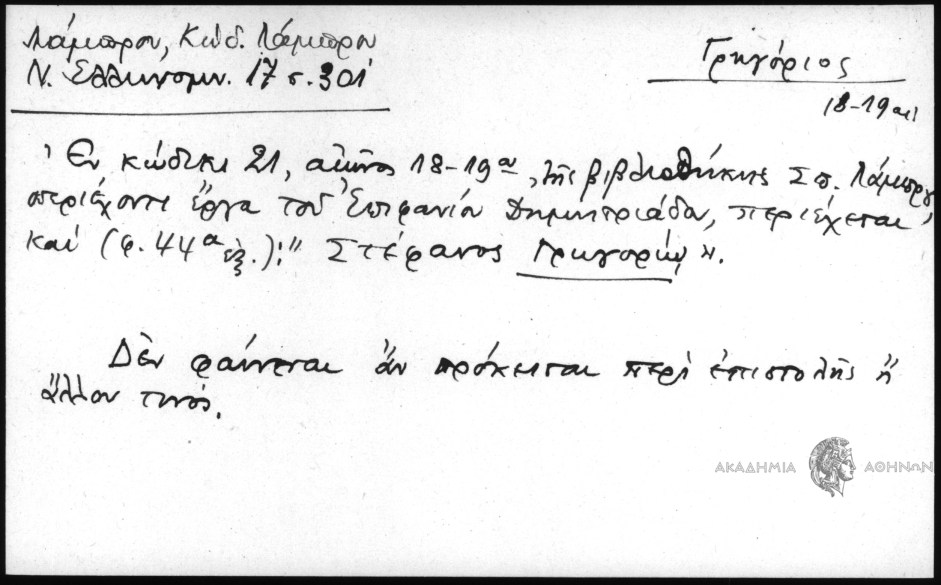 Λάμπρου, Κώδ. Λάμπρου
Ν. Ελληνομν. 17 σ. 301
Γρηγόριος
18-19 αι.
Ἐν κώδικι 21, αἰῶνος 18-19ᵒυ, τῆς βιβλιοθήκης Σπ. Λάμπρου
περιέχοντι ἔργα τοῦ Ἐπιφανίου Δημητριάδου, περιέχεται
καὶ (φ. 44α ἑξ.): "Στέφανος Γρηγορίῳ".
Δὲν φαίνεται ἂν πρόκειται περὶ ἐπιστολῆς ἢ
ἄλλου τινός.
ΑΚΑΔΗΜΙΑ ΑΘΗΝΩΝ